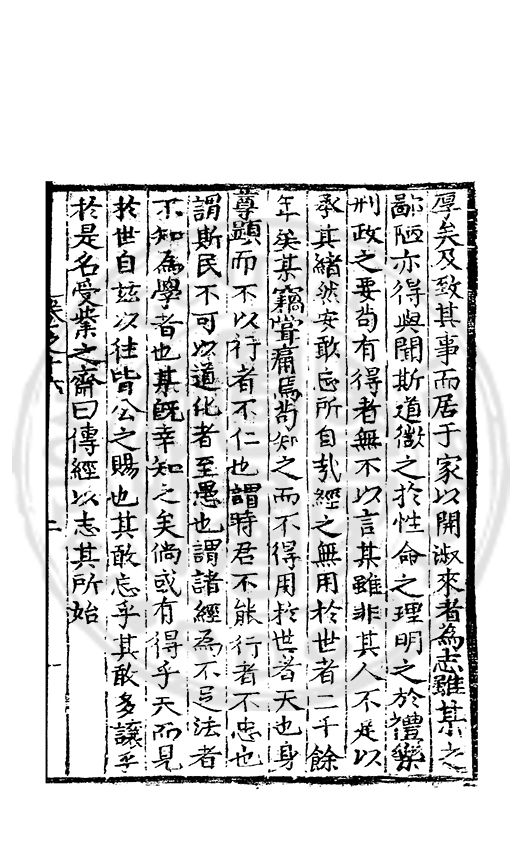 厚矣及致其事而居于家以開淑來者為志雖某之
鄙陋亦得與聞斯道微之於性命之理明之於禮樂
刑政之要茍有得者無不以言某雖非其人不足以
承其緒然安敢忘所自哉經之無用於世者二千餘
年矣某竊嘗痛焉尚知之而不得用於世者天也身
尊顯而不以行者不仁也謂時君不能行者不忠也
謂斯民不可以道化者至愚也謂諸經為不足法者
不知為學者也某既幸知之矣倘或有得乎天而見
於世自茲以往皆公之賜也其敢忘乎其敢多讓乎
於是名受業之齋曰傳經以志其所始
卷之十六
二